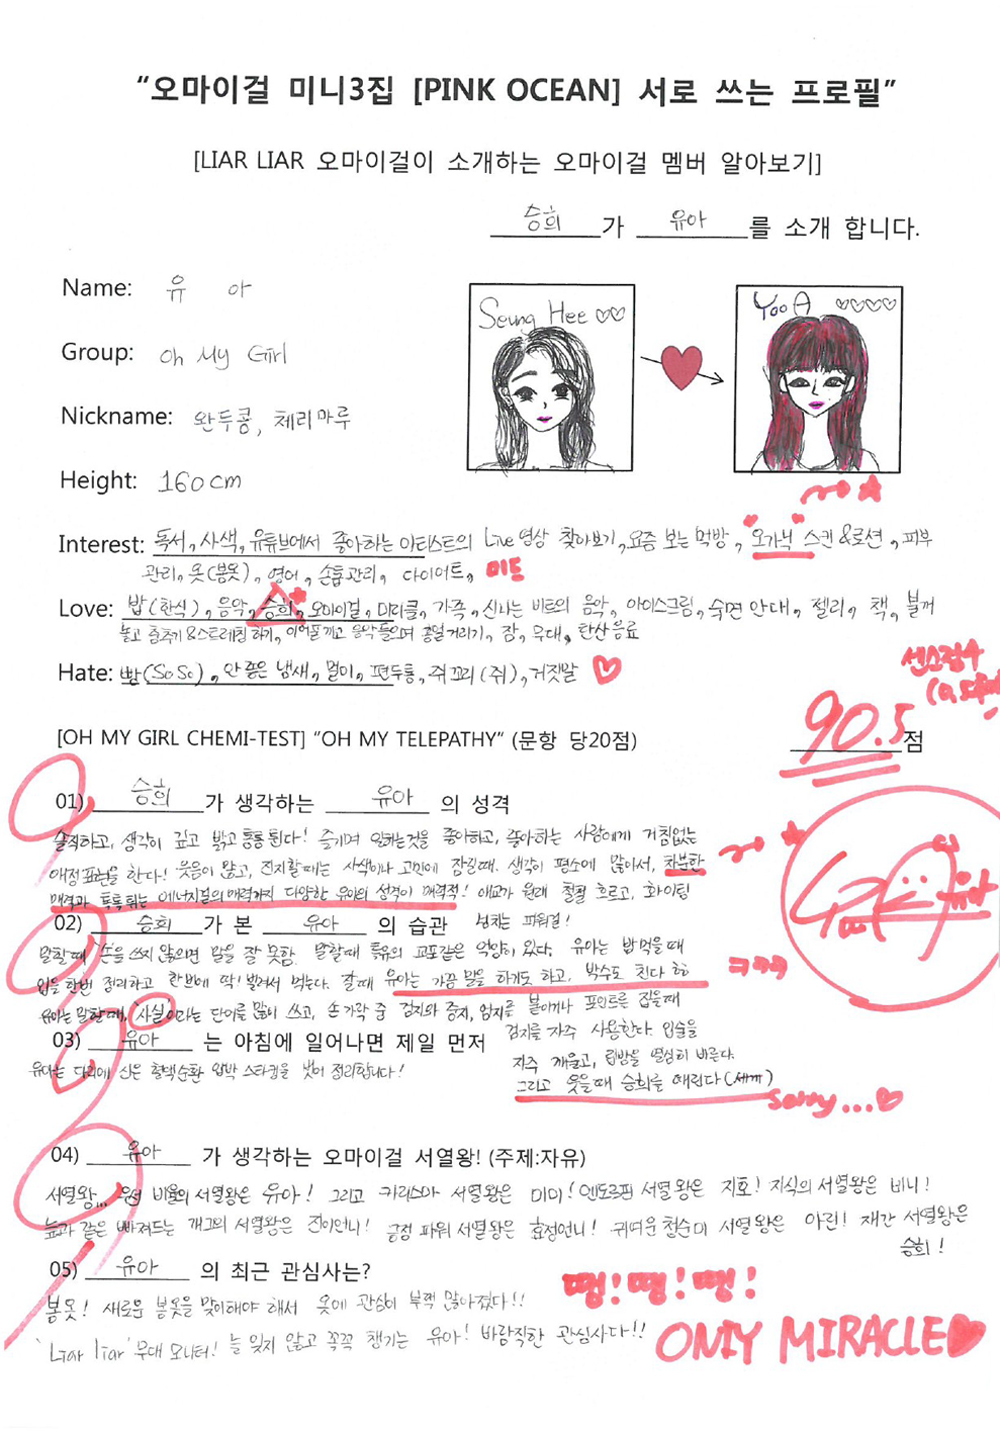 “오마이걸 미니3집 [PINK OCEAN] 서로 쓰는 프로필”
[LIAR LIAR 오마이걸이 소개하는 오마이걸 멤버 알아보기]
승희 가 유아 를 소개 합니다.
Name: 유 아
Seung Hee ♡♡
YooA ♡♡♡♡
Group: Oh My Girl
Nickname: 완두콩, 체리마루
Height: 160cm
Interest: 독서, 사색, 유튜브에서 좋아하는 아티스트의 Live 영상 찾아보기, 요즘 보는 먹방, "오가닉" 스킨&로션, 피부
관리, 옷(봄옷), 영어, 손톱관리, 다이어트, 미드
Love: 밥(한식), 음악, 승희, 오마이걸, 미라클, 가족, 신나는 비트의 음악, 아이스크림, 숙면 안대, 젤리, 책, 불꺼
놓고 춤추기&스트레칭하기, 이어폰 끼고 음악 들으며 흥얼거리기, 잠, 무대, 탄산음료
Hate: 빵(SoSo), 안 좋은 냄새, 멀미, 편두통, 쥐꼬리(쥐), 거짓말 ♡
센스점수
[OH MY GIRL CHEMI-TEST] “OH MY TELEPATHY” (문항 당20점)
90.5 점
01) 승희 가 생각하는 유아 의 성격
솔직하고, 생각이 깊고 밝고 통통 튄다! 즐기며 하는것을 좋아하고, 좋아하는 사람에게 거침없는
애정표현을 한다! 웃음이 많고, 진지할때는 사색이나 고민에 잠길때. 생각이 평소에 많아서, 차분한
매력과 톡톡 튀는 에너지걸의 매력까지 다양한 유아의 성격이 매력적! 애교가 원래 철철 흐르고, 화이팅
넘치는 파워걸!
유아
02) 승희 가 본 유아 의 습관
말할때 손을 쓰지 않으면 말을 잘 못함. 말할때 특유의 교포같은 억양이 있다. 유아는 밥먹을때
입을 한번 정리하고 한번에 딱! 벌려서 먹는다. 잘때 유아는 가끔 말을 하기도 하고, 박수도 친다 하
ㅋㅋㅋ
유아는 말할때, '사실'이라는 단어를 많이 쓰고, 손가락 중 검지와 중지, 엄지를 붙이거나 포인트를 집을때
검지를 자주 사용한다. 입술을
자주 깨물고, 립밤을 열심히 바른다.
그리고 웃을때 승희를 때린다(세게)
Sorry...♡
03) 유아 는 아침에 일어나면 제일 먼저
유아는 다리에 신은 혈액순환 압박 스타킹을 벗어 정리합니다!
04) 유아 가 생각하는 오마이걸 서열왕! (주제:자유)
서열왕... 우선 비율의 서열왕은 유아! 그리고 카리스마 서열왕은 미미! 엔도르핀 서열왕은 지호! 지식의 서열왕은 비니!
늪과 같은 빠져드는 개그의 서열왕은 진이언니! 긍정 파워 서열왕은 효정언니! 귀여운 천순미 서열왕은 아린! 재간 서열왕은
승희!
05) 유아 의 최근 관심사는?
봄옷! 새로운 봄옷을 맞이해야 해서 옷에 관심이 부쩍 많아졌다!!
'Liar liar' 무대 모니터! 늘 잊지 않고 꼭꼭 챙기는 유아! 바람직한 관심사다!!
땡! 땡! 땡!
ONLY MIRACLE♥